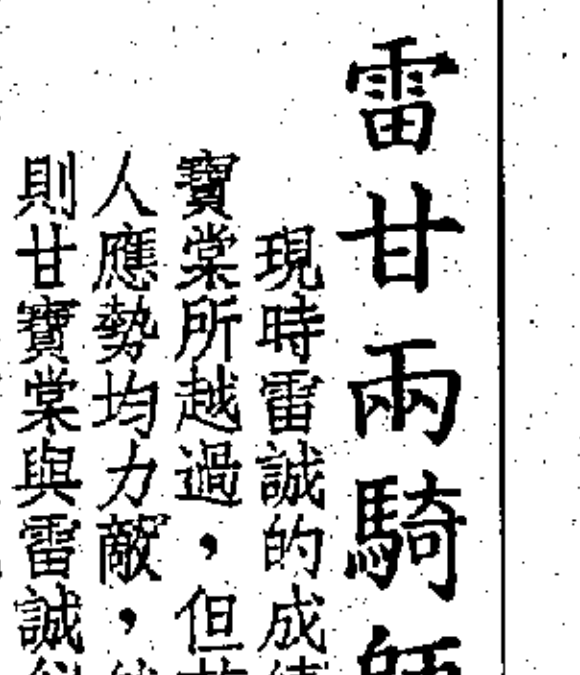 雷甘兩騎師
現時雷誠的成績
寶棠所越過，但
人應勢均力敵，
則甘寶棠與雷誠